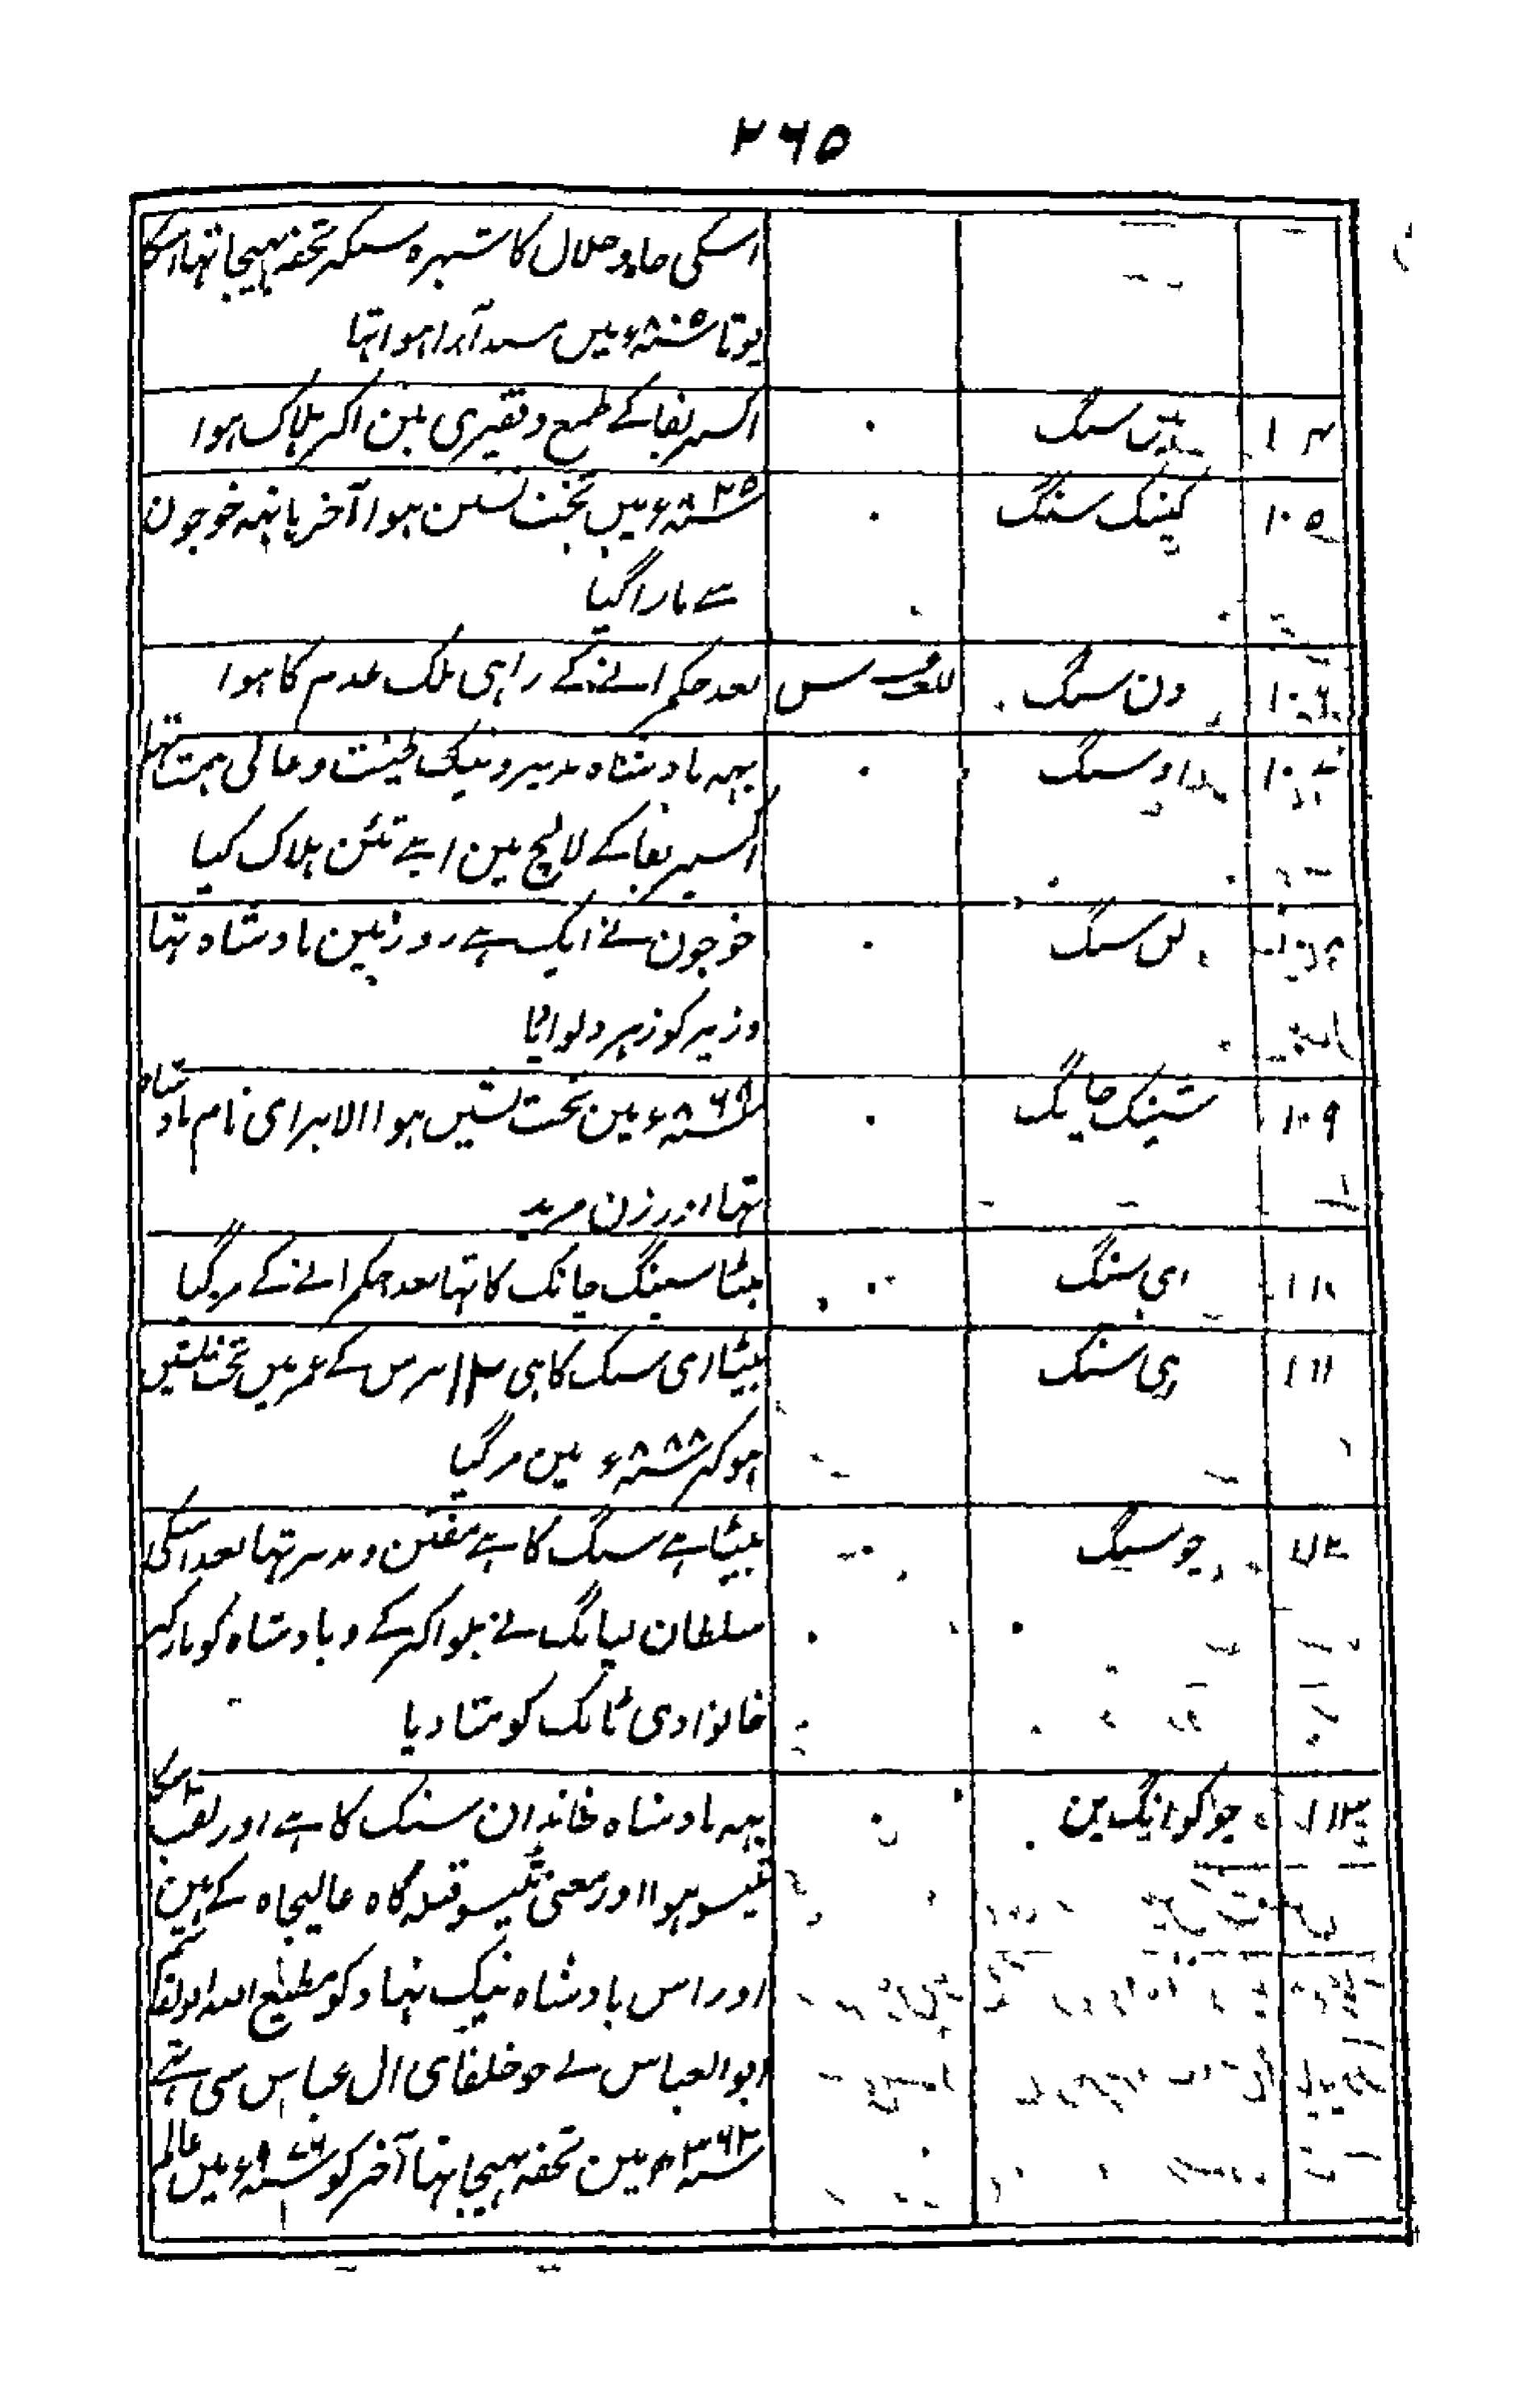 ۲۶۵
اسکی جاہ و جلال کا شہرہ سنکر تحفہ بہیجا تہا اسکا
پوتا سنہ ۸۰۵ء میں مسند آرا ہوا تہا
۱۰۴ سنگ ۰ اکسیر بقا کے طمع و فقیری مین آکر ہلاک ہوا
۱۰۵ کینک سنگ ۰ سنہ ۸۲۵ء میں تخت نشین ہوا آخر ہاتہہ خوجون
سے مارا گیا
۱۰۶ ون سنگ بعد حکمرانے کے راہی ملک عدم کا ہوا
۱۰۷ داو سنگ ۰ یہہ بادشاہ مدبر و نیک طینت و عالی ہمت تہا
اکسیر بقا کے لالچ مین اپنے تئن ہلاک کیا
سنگ ۰ خوجون نے ایک ہے روز مین بادشاہ تہا
وزیر کو زہر دلوایا
۱۰۹ شینک جانگ ۰ سنہ ۸۶۹ء مین تخت نشیں ہوا الا برای نام بادشاہ
تہا اور زن مرید
۱۱۰ ای سنگ ۰ بیٹا سینگ جانک کا تہا بعد حکمرانے کے مر گیا
۱۱۱ ہی سنک بیٹا ای سنک کا ہی ۱۲ برس کے عمر میں تخت نشین
ہو کر سنہ ۸۸۸ء مین مر گیا
۱۱۲ چو سنگ بیٹا ہے سنگ کا ہے مفتن و مدبر تہا بعد اسکی
سلطان لیانگ نے بلوا کر کے و بادشاہ کو مار کر
خانوادی ٹانک کو مٹا دیا
۱۱۳ چو کو انگ ین ۰ یہہ بادشاہ خاندان سنک کا ہے اور لقب اسکا
ٹیسو ہوا اور معنی ٹیسو قبلہ گاہ عالیجاہ کے ہین
اور اس بادشاہ نیک نہاد کو مطیع اللہ
ابو العباس نے جو خلفای ال عباس سی تہے
سنہ ۳۶۲ھ مین تحفہ بہیجا تہا آخر کو سنہ ۹۷۶ء میں عالم